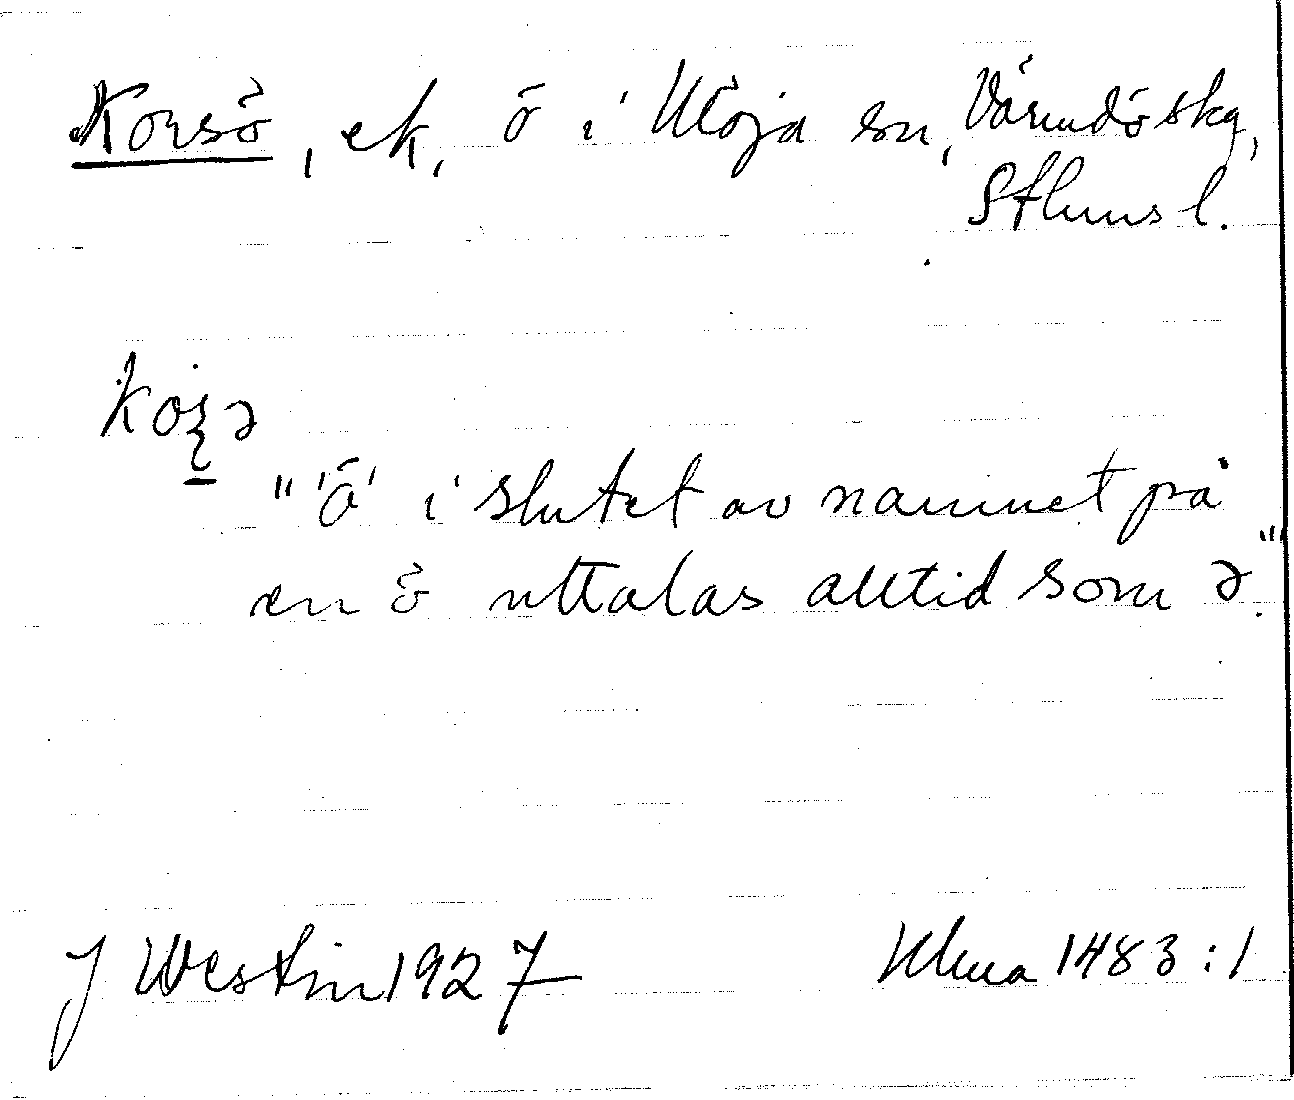 Korsö, ek, ö i Möja sn, Värmdö skg,
Sthlms l.
"'ö' i slutet av namnet på
en ö uttalas alltid som ə."
J Westin 1927 Ulma 1483:1